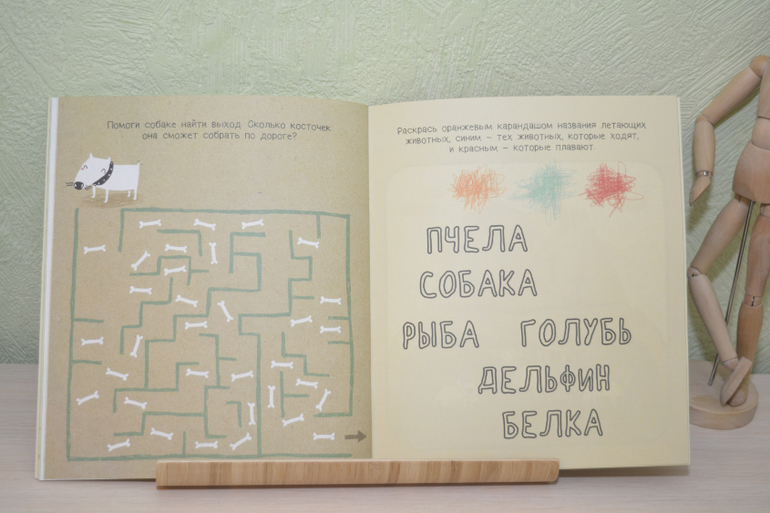 Помоги собаке найти выход. Сколько косточек
она сможет собрать по дороге?
Раскрась оранжевым карандашом названия летающих
животных, синим – тех животных, которые ходят,
и красным – которые плавают.
ПЧЕЛА
СОБАКА
РЫБА ГОЛУБЬ
ДЕЛЬФИН
БЕЛКА